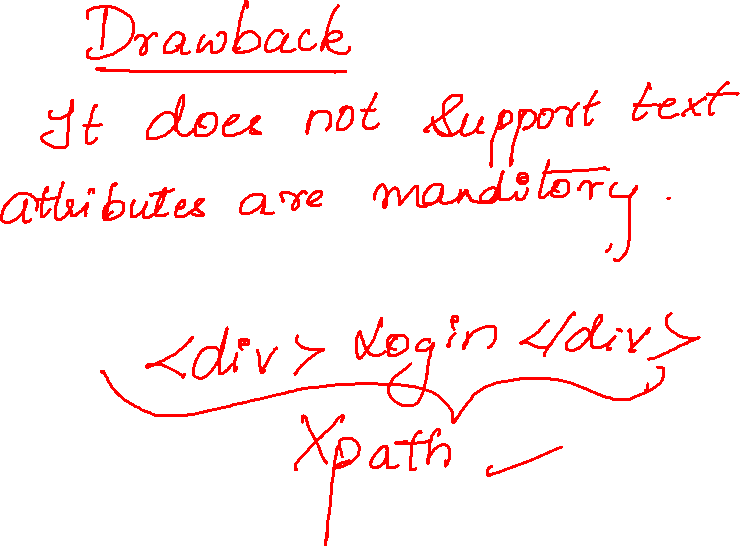 Drawback
It does not support text
attributes are manditory.
<div> Login </div>
Xpath